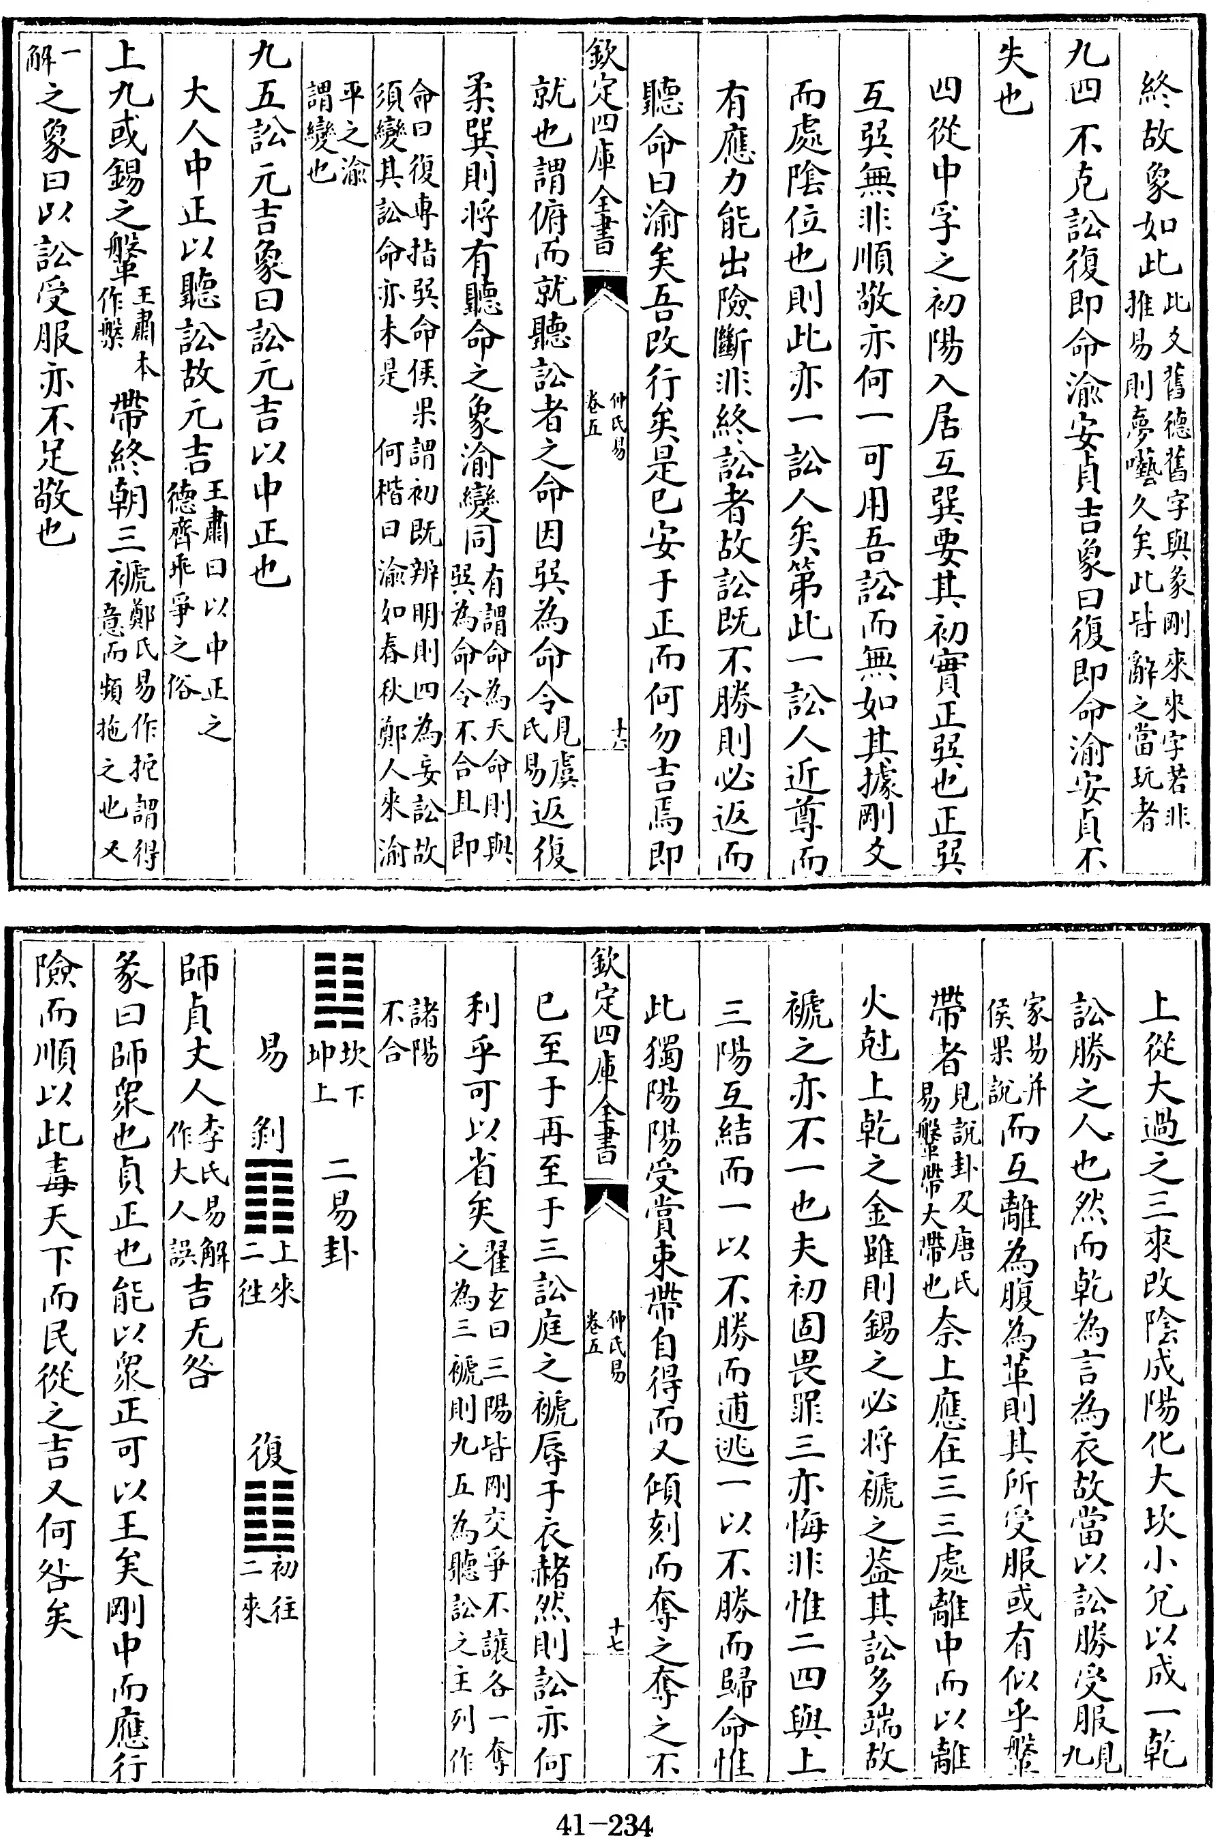 終故象如此此爻舊德舊字與彖剛來來字若非推易則夢囈久矣此皆辭之當玩者
九四不克訟復即命渝安貞吉象曰復即命渝安貞不
失也
四從中孚之初陽入居互巽要其初實正巽也正巽
互巽無非順敬亦何一可用吾訟而無如其據剛爻
而處陰位也則此亦一訟人矣第此一訟人近尊而
有應力能出險斷非終訟者故訟既不勝則必返而
聽命曰渝矣吾改行矣是已安于正而何勿吉焉即
欽定四庫全書
仲氏易
卷五
十六
就也謂俯而就聽訟者之命因巽為命令見虞氏易返復
柔巽則將有聽命之象渝變同有謂命為天命則與巽為命令不合且即
命曰復專指巽命侯果謂初既辨明則四為妄訟故須變其訟命亦未是 何楷曰渝如春秋鄭人來渝
平之渝謂變也
九五訟元吉象曰訟元吉以中正也
大人中正以聽訟故元吉王肅曰以中正之德齊乖爭之俗
上九或錫之鞶王肅本作槃帶終朝三褫鄭氏易作拕謂得意而頻拖之也又
一解之象曰以訟受服亦不足敬也
上從大過之三來改陰成陽化大坎小兌以成一乾
訟勝之人也然而乾為言為衣故當以訟勝受服見九
家易并侯果說而互離為腹為革則其所受服或有似乎鞶
帶者見說卦及唐氏易鞶帶大帶也奈上應在三三處離中而以離
火尅上乾之金雖則錫之必將褫之葢其訟多端故
褫之亦不一也夫初固畏罪三亦悔非惟二四與上
三陽互結而一以不勝而逋逃一以不勝而歸命惟
此獨陽陽受賞束帶自得而又傾刻而奪之奪之不
欽定四庫全書
仲氏易
卷五
十七
已至于再至于三訟庭之褫辱于衣赭然則訟亦何
利乎可以省矣翟玄曰三陽皆剛交爭不讓各一奪之為三褫則九五為聽訟之主列作
諸陽不合
䷆坎下坤上 二易卦
易 剝䷖上來二徃 復䷗初往二來
師貞丈人李氏易解作大人誤吉无咎
彖曰師衆也貞正也能以衆正可以王矣剛中而應行
險而順以此毒天下而民從之吉又何咎矣
41-234